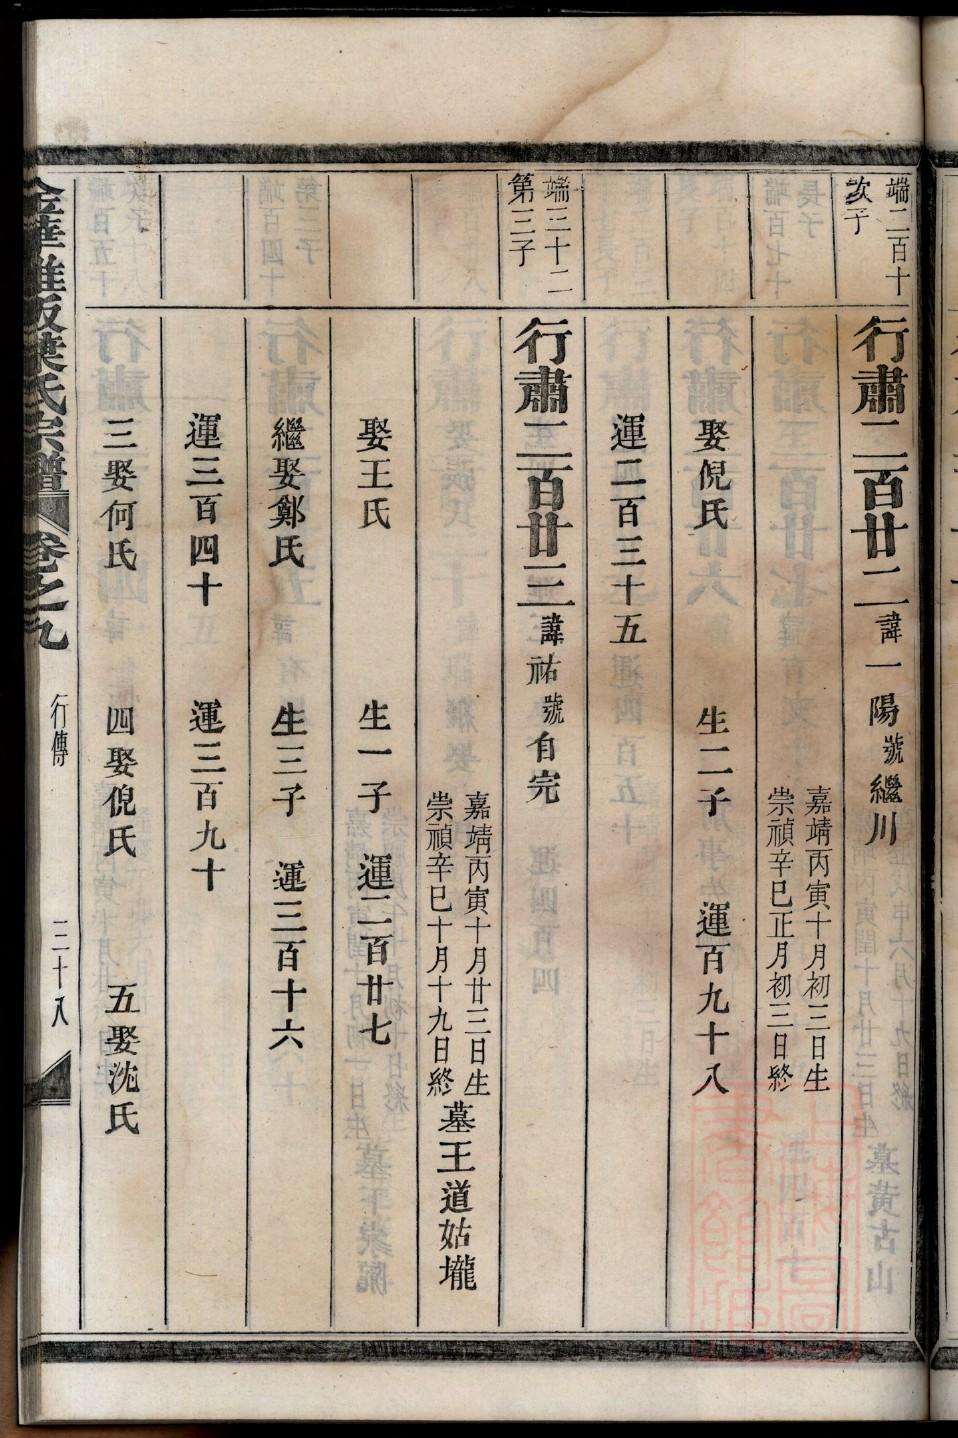 端二百十
次子
行肅二百廿二諱一陽號繼川
嘉靖丙寅十月初三日生
崇禎辛巳正月初三日終
娶倪氏 生二子 運百九十八
運二百三十五
端三十二
第三子
行肅二百廿三諱祐號自完
嘉靖丙寅十月廿三日生
崇禎辛巳十月十九日終
墓王道姑壠
娶王氏 生一子 運二百廿七
繼娶鄭氏 生三子 運三百十六
運三百四十 運三百九十
三娶何氏 四娶倪氏 五娶沈氏
葉氏宗譜 卷之九 行傳 三十八